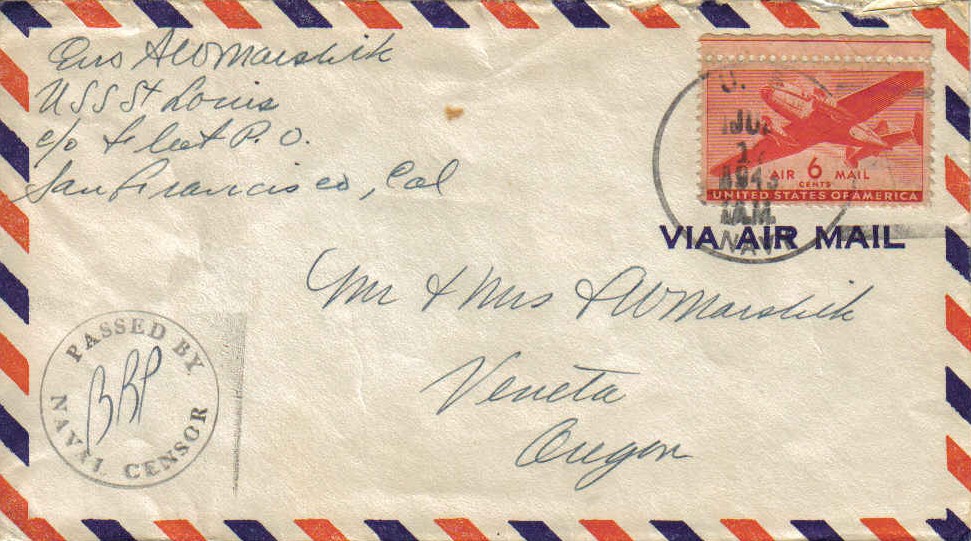 Ens AW Marshik
USS St Louis
c/o Fleet P.O.
San Francisco, Cal
U.S.
JUL
17
1943
A.M.
NAVY
AIR 6 MAIL
CENTS
UNITED STATES OF AMERICA
VIA AIR MAIL
Mr & Mrs AW Marshik
Veneta
Oregon
PASSED BY
BRP
NAVAL CENSOR